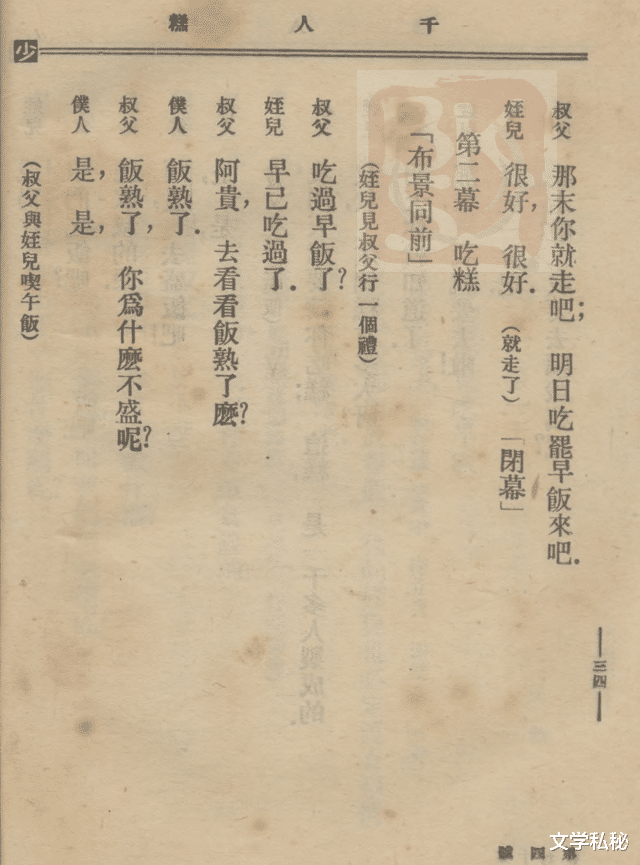 千人糕
少
叔父 那末你就走吧; 明日吃罷早飯來吧.
姪兒 很好, 很好. (就走了) 「閉幕」
第二幕 吃糕
「布景同前」
(姪兒見叔父行一個禮)
叔父 吃過早飯了?
姪兒 早已吃過了.
叔父 阿貴, 去看看飯熟了麽?
僕人 飯熟了.
叔父 飯熟了, 你爲什麽不盛呢?
僕人 是, 是,
(叔父與姪兒喫午飯)
三四
第四號
文学私秘